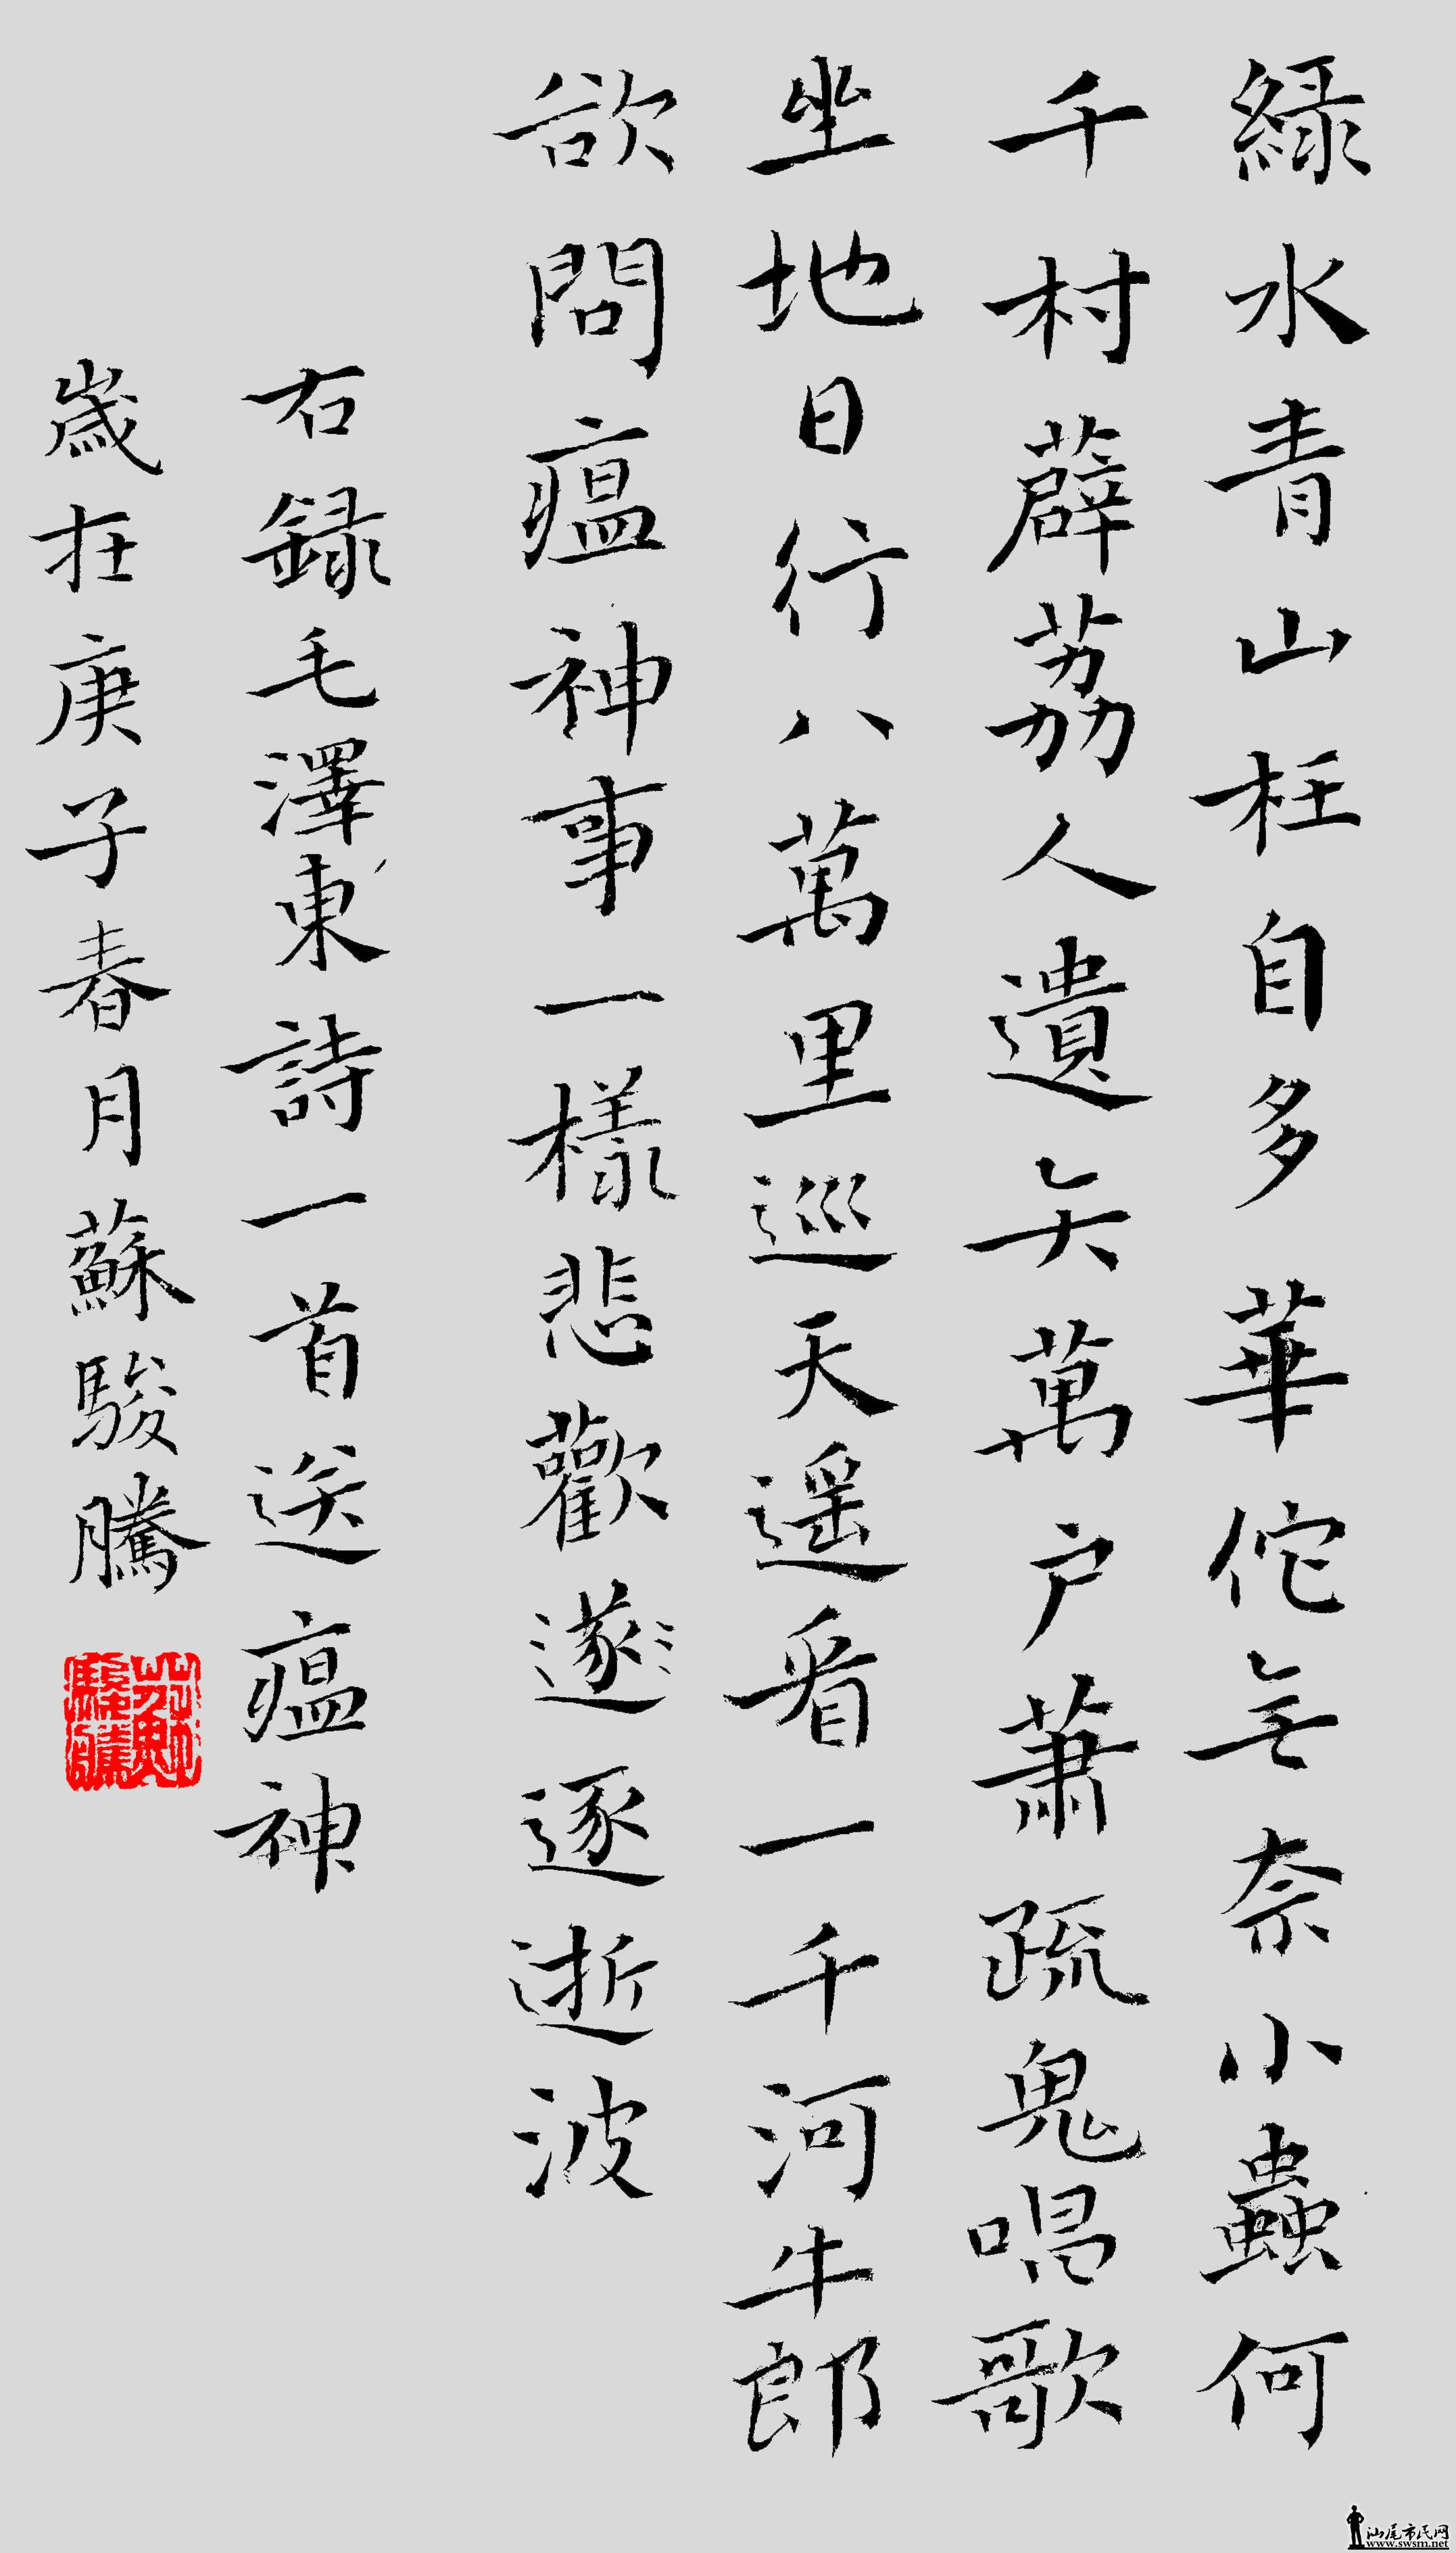 緑水青山枉自多華佗無奈小蟲何
千村薜荔人遺矢萬户蕭疏鬼唱歌
坐地日行八萬里巡天遥看一千河牛郎
欲問瘟神事一樣悲歡遂逐逝波
右録毛澤東詩一首送瘟神
歲在庚子春月蘇駿騰
蘇駿騰
汕尾市民网
www.swsm.net